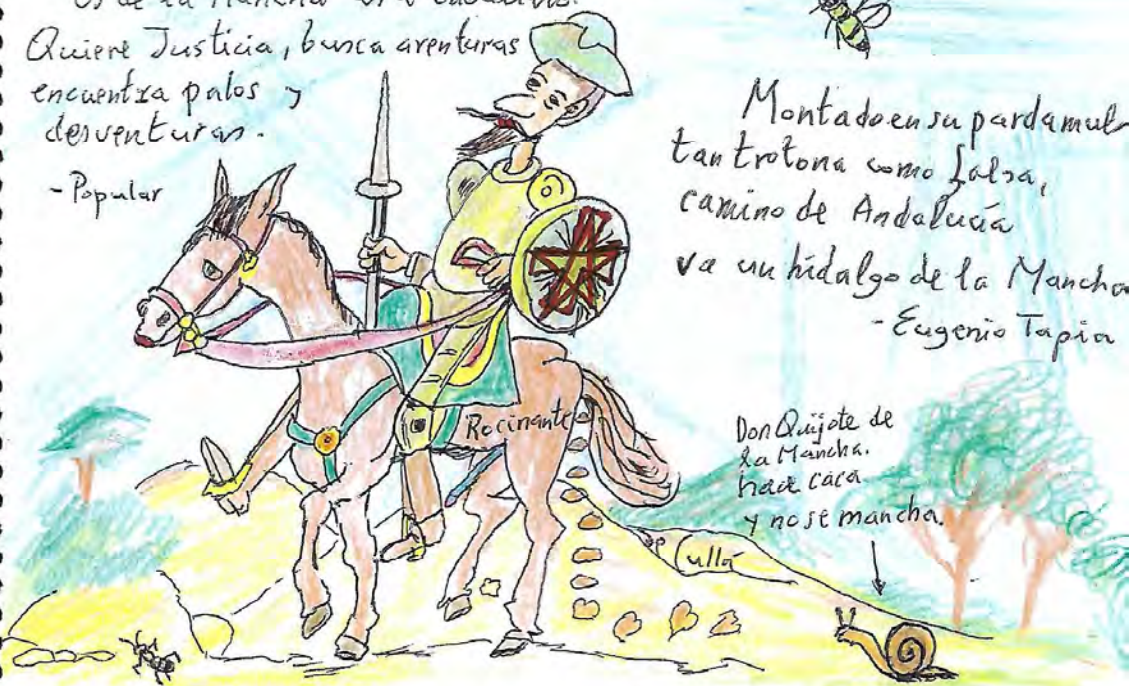 es de la Mancha
Quiere Justicia, busca aventuras
encuentra palos y
desventuras.
- Popular
Montado en su parda mul
tan trotona como falsa,
camino de Andalucía
va un hidalgo de la Mancha
- Eugenio Tapia
Rocinante
Don Quijote de
la Mancha.
hace caca
y no se mancha.
Cullá